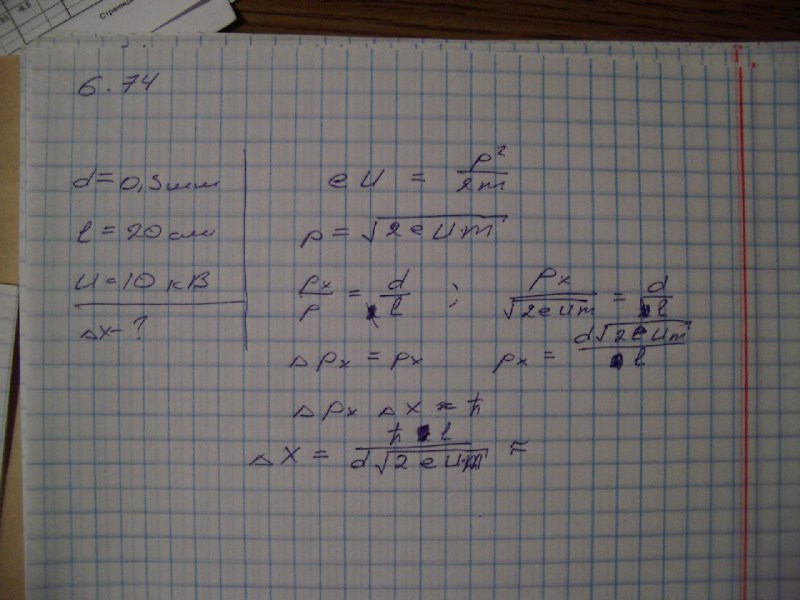 Страниц
6.74
d = 0,5 мм
l = 20 см
U = 10 кВ
Δx - ?
eU = p²/2m
p = √2eUm
px/p = d/l ; px/√2eUm = d/l
Δpx = px px = d√2eUm/l
Δpx Δx ≈ ħ
Δx = ħ l/d√2eUm ≈